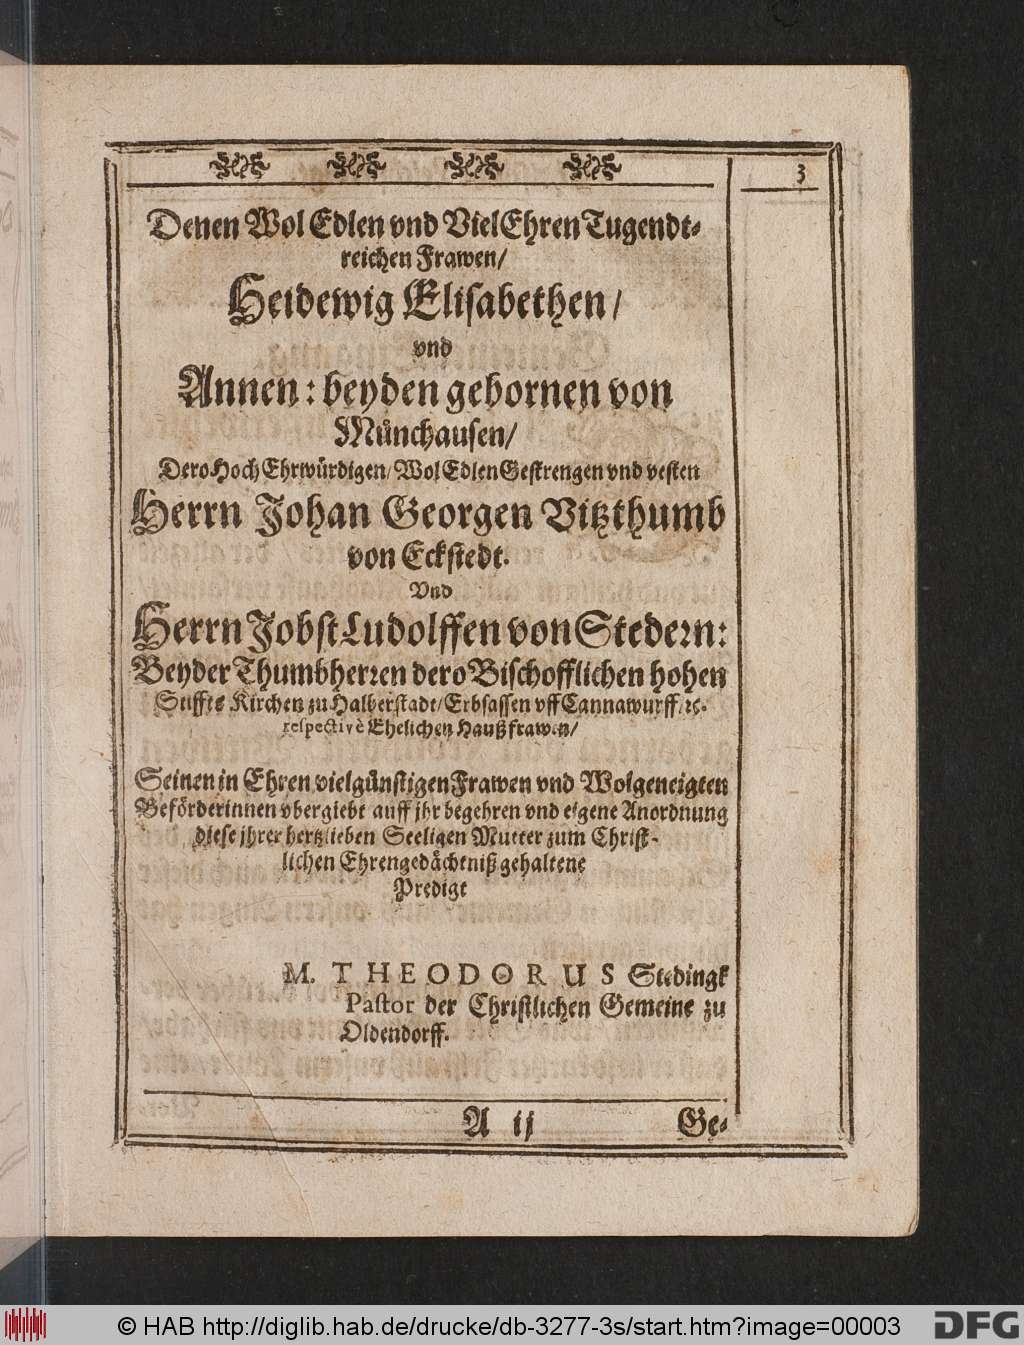 3
Denen Wol Edlen vnd VielEhren Tugendt-
reichen Frawen/
Heidewig Elisabethen/
vnd
Annen: beyden gebornen von
Münchausen/
Dero Hoch Ehrwürdigen/ Wol Edlen Gestrengen vnd vesten
Herrn Johan Georgen Vitzthumb
von Eckstedt.
Vnd
Herrn Jobst Ludolffen von Stedern:
Beyder Thumbherren dero Bischofflichen hohen
Stiffts Kirchen zu Halberstadt/ Erbsassen vff Cannawurff/ ꝛc.
respectivè Ehelichen Haußfrawen/
Seinen in Ehren vielgünstigen Frawen vnd Wolgeneigten
Beförderinnen vbergiebt auff jhr begehren vnd eigene Anordnung
diese jhrer hertzlieben Seeligen Mutter zum Christ-
lichen Ehrengedächtniß gehaltene
Predigt
M. THEODORUS Stedingk
Pastor der Christlichen Gemeine zu
Oldendorff.
A ij Ge-
© HAB http://diglib.hab.de/drucke/db-3277-3s/start.htm?image=00003
DFG